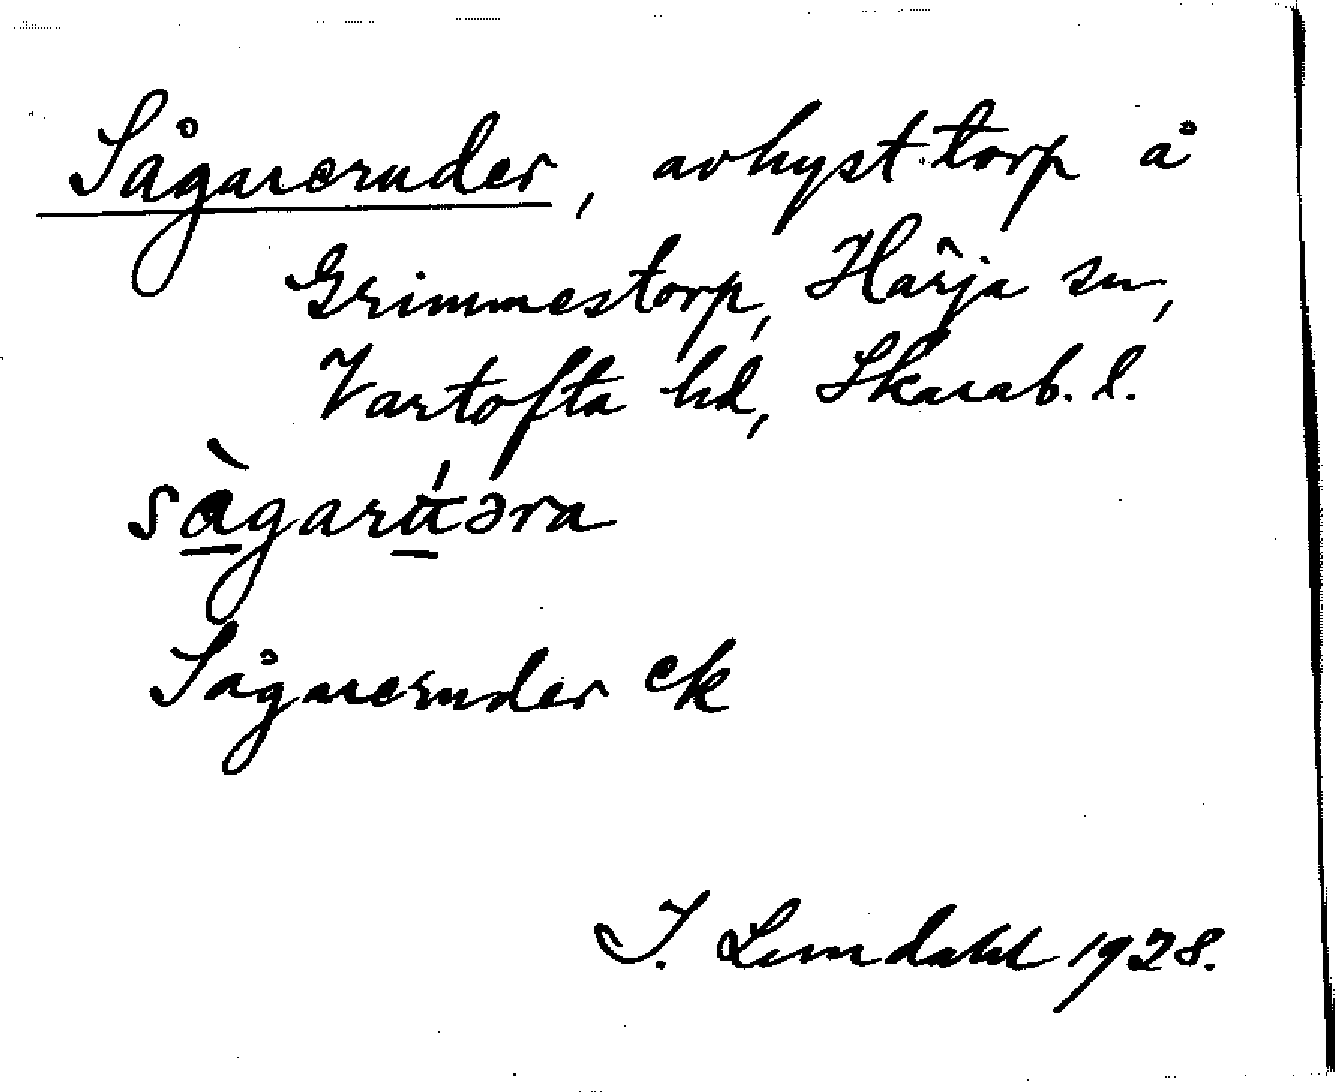 Sågareruder, avhyst torp å
Grimmestorp, Härja sn,
Vartofta hd, Skarab. l.
sàgarʉ́əra
Sågareruder ek
J. Lundahl 1928.